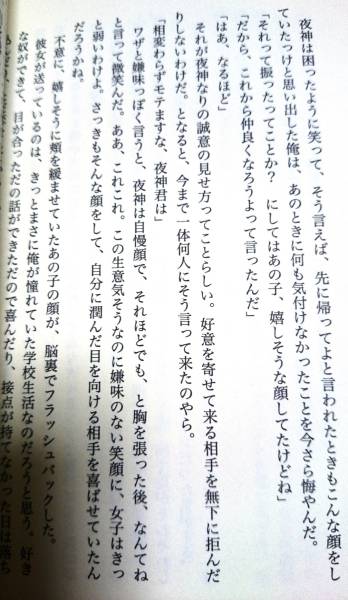 夜神は困ったように笑って、そう言えば、先に帰ってよと言われたときもこんな顔をし
ていたっけと思い出した俺は、あのときに何も気付けなかったことを今さら悔やんだ。
「それって振ったってことか？　にしてはあの子、嬉しそうな顔してたけどね」
「だから、これから仲良くなろうよって言ったんだ」
「はあ、なるほど」
それが夜神なりの誠意の見せ方ってことらしい。好意を寄せて来る相手を無下に拒んだ
りしないわけだ。となると、今まで一体何人にそう言って来たのやら。
「相変わらずモテますな、夜神君は」
ワザと嫌味っぽく言うと、夜神は自慢顔で、それほどでも、と胸を張った後、なんてね
と言って微笑んだ。ああ、これこれ。この生意気そうなのに嫌味のない笑顔に、女子はきっ
と弱いわけよ。さっきもそんな顔をして、自分に潤んだ目を向ける相手を喜ばせていたん
だろうかね。
不意に、嬉しそうに頬を緩ませていたあの子の顔が、脳裏でフラッシュバックした。
彼女が送っているのは、きっとまさに俺が憧れていた学校生活なのだろうと思う。好き
な奴ができて、目が合っただの話ができただので喜んだり、接点が持てなかった日は落ち